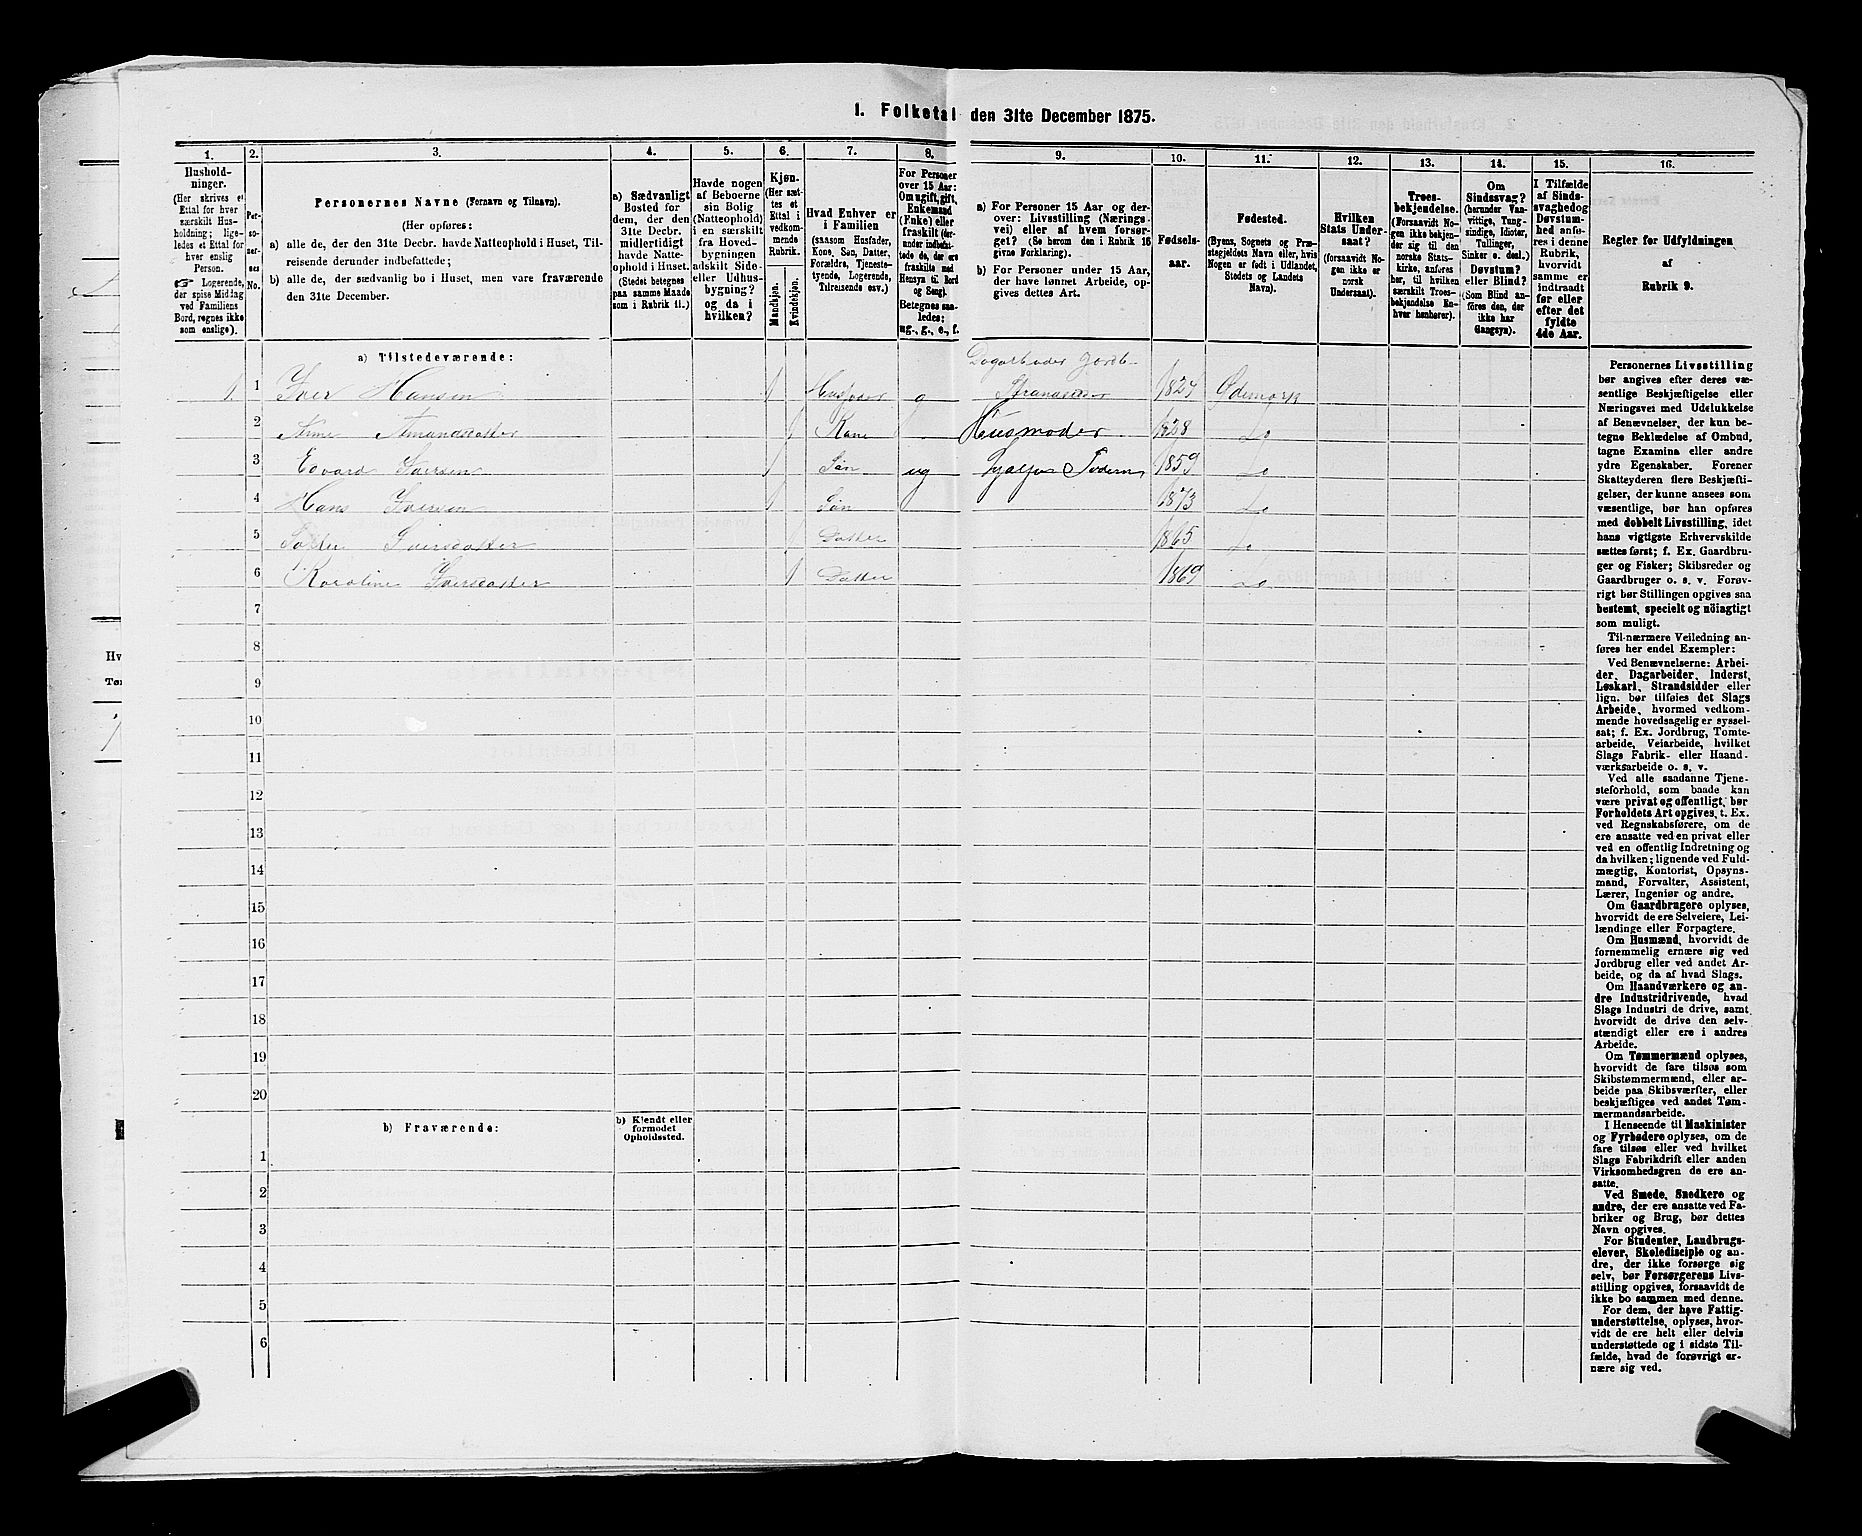 1. Folketal den 31te December 1875.
1.
Hushold-
ninger.
(Her skrives et
Ettal for hver
særskilt Hus-
holdning; lige-
ledes et Ettal for
hver enslig
Person.
☞ Logerende,
der spise Middag
ved Familiens
Bord, regnes ikke
som enslige).
2.
Per-
so-
ner-
nes
No.
3.
Personernes Navne (Fornavn og Tilnavn).
(Her opføres:
a) alle de, der den 31te Decbr. havde Natteophold i Huset, Til-
reisende derunder indbefattede;
b) alle de, der sædvanlig bo i Huset, men vare fraværende
den 31te December.
4.
a) Sædvanligt
Bosted for
dem, der den
31te Decbr.
midlertidigt
havde Natte-
ophold i Huset.
(Stedet betegnes
paa samme Maade
som i Rubrik 11.)
5.
Havde nogen
af Beboerne
sin Bolig
(Natteophold)
i en særskilt
fra Hoved-
bygningen
adskilt Side-
eller Udhus-
bygning?
og da i
hvilken?
6.
Kjøn.
(Her sæt-
tes et
Ettal i
vedkom-
mende
Rubrik.
Mandkjøn.
Kvindekjøn.
7.
Hvad Enhver er
i Familien
(saasom Husfader,
Kone, Søn, Datter,
Forældre, Tjeneste-
tyende, Logerende,
Tilreisende osv.)
8.
For Personer
over 15 Aar:
Om ugift, gift,
Enkemand
(Enke) eller
fraskilt (der-
under indbefat-
tede de, der ere
fraskilte med
Hensyn til Bord
og Seng).
Betegnes saa-
ledes:
ug., g., e., f.
9.
a) For Personer 15 Aar og der-
over: Livsstilling (Nærings-
vei) eller af hvem forsør-
get? (Se herom den i Rubrik 16
givne Forklaring).
b) For Personer under 15 Aar,
der have lønnet Arbeide, op-
gives dettes Art.
10.
Fødsels-
aar.
11.
Fødested.
(Byens, Sognets og Præ-
stegjeldets Navn eller, hvis
Nogen er født i Udlandet,
Stedets og Landets
Navn).
12.
Hvilken
Stats Under-
saat?
(forsaavidt No-
gen ikke er
norsk
Undersaat).
13.
Troes-
bekjendelse.
(Forsaavidt No-
gen ikke bekjen-
der sig til den
norske Stats-
kirke, anføres
her, til hvilken
særskilt Troes-
bekjendelse En-
hver henhører).
14.
Om
Sindssvag?
(herunder Van-
vittige, Tung-
sindige, Idioter,
Tullinger,
Sinker o. desl.)
Døvstum?
eller Blind?
(Som Blind an-
føres den, der
ikke har
Gangsyn).
15.
I Tilfælde
af Sinds-
svaghed og
Døvstum-
hed anfø-
res i denne
Rubrik,
hvorvidt
samme er
indtraadt
før eller
efter det
fyldte
4de Aar.
16.
Regler for Udfyldningen
af
Rubrik 9.
a) Tilstedeværende:
Dagarbeider Jordb-
1. 1 Iver Hansen 1 Husfader g Strandsider 1824 Ødemark
2 Anne Amundsdatter 1 Kone Husmoder 1828 Do
3 Edvard Iversen 1 Søn ug Hjælper Faderen 1859 Do
4 Hans Iversen 1 Søn 1873 Do
5 Iversdatter 1 Datter 1865 Do
6 Karoline Iversdatter 1 Datter 1869 Do
7
8
9
10
11
12
13
14
15
16
17
18
19
20
b) Fraværende:
b) Kjendt eller
formodet
Opholdssted.
1
2
3
4
5
6
Personernes Livsstilling
bør angives efter deres væ-
sentlige Beskjæftigelse eller
Næringsvei med Udelukkelse
af Benævnelser, der kun be-
tegne Beklædelse af Ombud,
tagne Examina eller andre
ydre Egenskaber. Forener
Skatteyderen flere Beskjæfti-
gelser, der kunne ansees som
væsentlige, bør han opføres
med dobbelt Livsstilling, idet
hans vigtigste Erhvervskilde
sættes først; f. Ex. Gaardbru-
ger og Fisker; Skibsreder og
Gaardbruger o. s. v. Forøv-
rigt bør Stillingen opgives saa
bestemt, specielt og nöiagtigt
som muligt.
Til nærmere Veiledning an-
føres her endel Exempler:
Ved Benævnelserne: Arbei-
der, Dagarbeider, Inderst,
Løskarl, Strandsidder eller
lign. bør tilføies det Slags
Arbeide, hvormed vedkom-
mende hovedsagelig er syssel-
sat; f. Ex. Jordbrug, Tomte-
arbeide, Veiarbeide, hvilket
Slags Fabrik- eller Haand-
værksarbeide o. s. v.
Ved alle saadanne Tjene-
steforhold, som baade kan
være privat og offentligt, bør
Forholdets Art opgives, t. Ex.
ved Regnskabsførere, om de
ere ansatte ved en privat eller
ved en offentlig Indretning og
da hvilken; lignende ved Fuld-
mægtig, Kontorist, Opsyns-
mand, Forvalter, Assistent,
Lærer, Ingeniør og andre.
Om Gaardbrugere oplyses,
hvorvidt de ere Selveiere, Lei-
lændinge eller Forpagtere.
Om Husmænd, hvorvidt de
fornemmelig ernære sig ved
Jordbrug eller ved andet Ar-
beide, og da af hvad Slags.
Om Haandværkere og an-
dre Industridrivende, hvad
Slags Industri de drive, samt
hvorvidt de drive den selv-
stændigt eller ere i andres
Arbeide.
Om Tømmermænd oplyses,
hvorvidt de fare tilsøs som
Skibstømmermænd, eller ar-
beide paa Skibsværfter, eller
beskjæftiges ved andet Tøm-
mermandsarbeide.
I Henseende til Maskinister
og Fyrbødere oplyses, om de
fare tilsøs eller ved hvilket
Slags Fabrikdrift eller anden
Virksomhedsgren de ere an-
satte.
Ved Smede, Snedkere og
andre, der ere ansatte ved Fa-
briker og Brug, bør dettes
Navn opgives.
For Studenter, Landbrugs-
elever, Skoledisciple og an-
dre, der ikke forsørge sig
selv, bør Forsørgerens Livs-
stilling opgives, forsaavidt de
ikke bo sammen med denne.
For dem, der have Fattig-
understøttelse, oplyses, hvor-
vidt de ere helt eller delvis
understøttede og i sidste Til-
fælde, hvad de forøvrigt er-
nære sig ved.